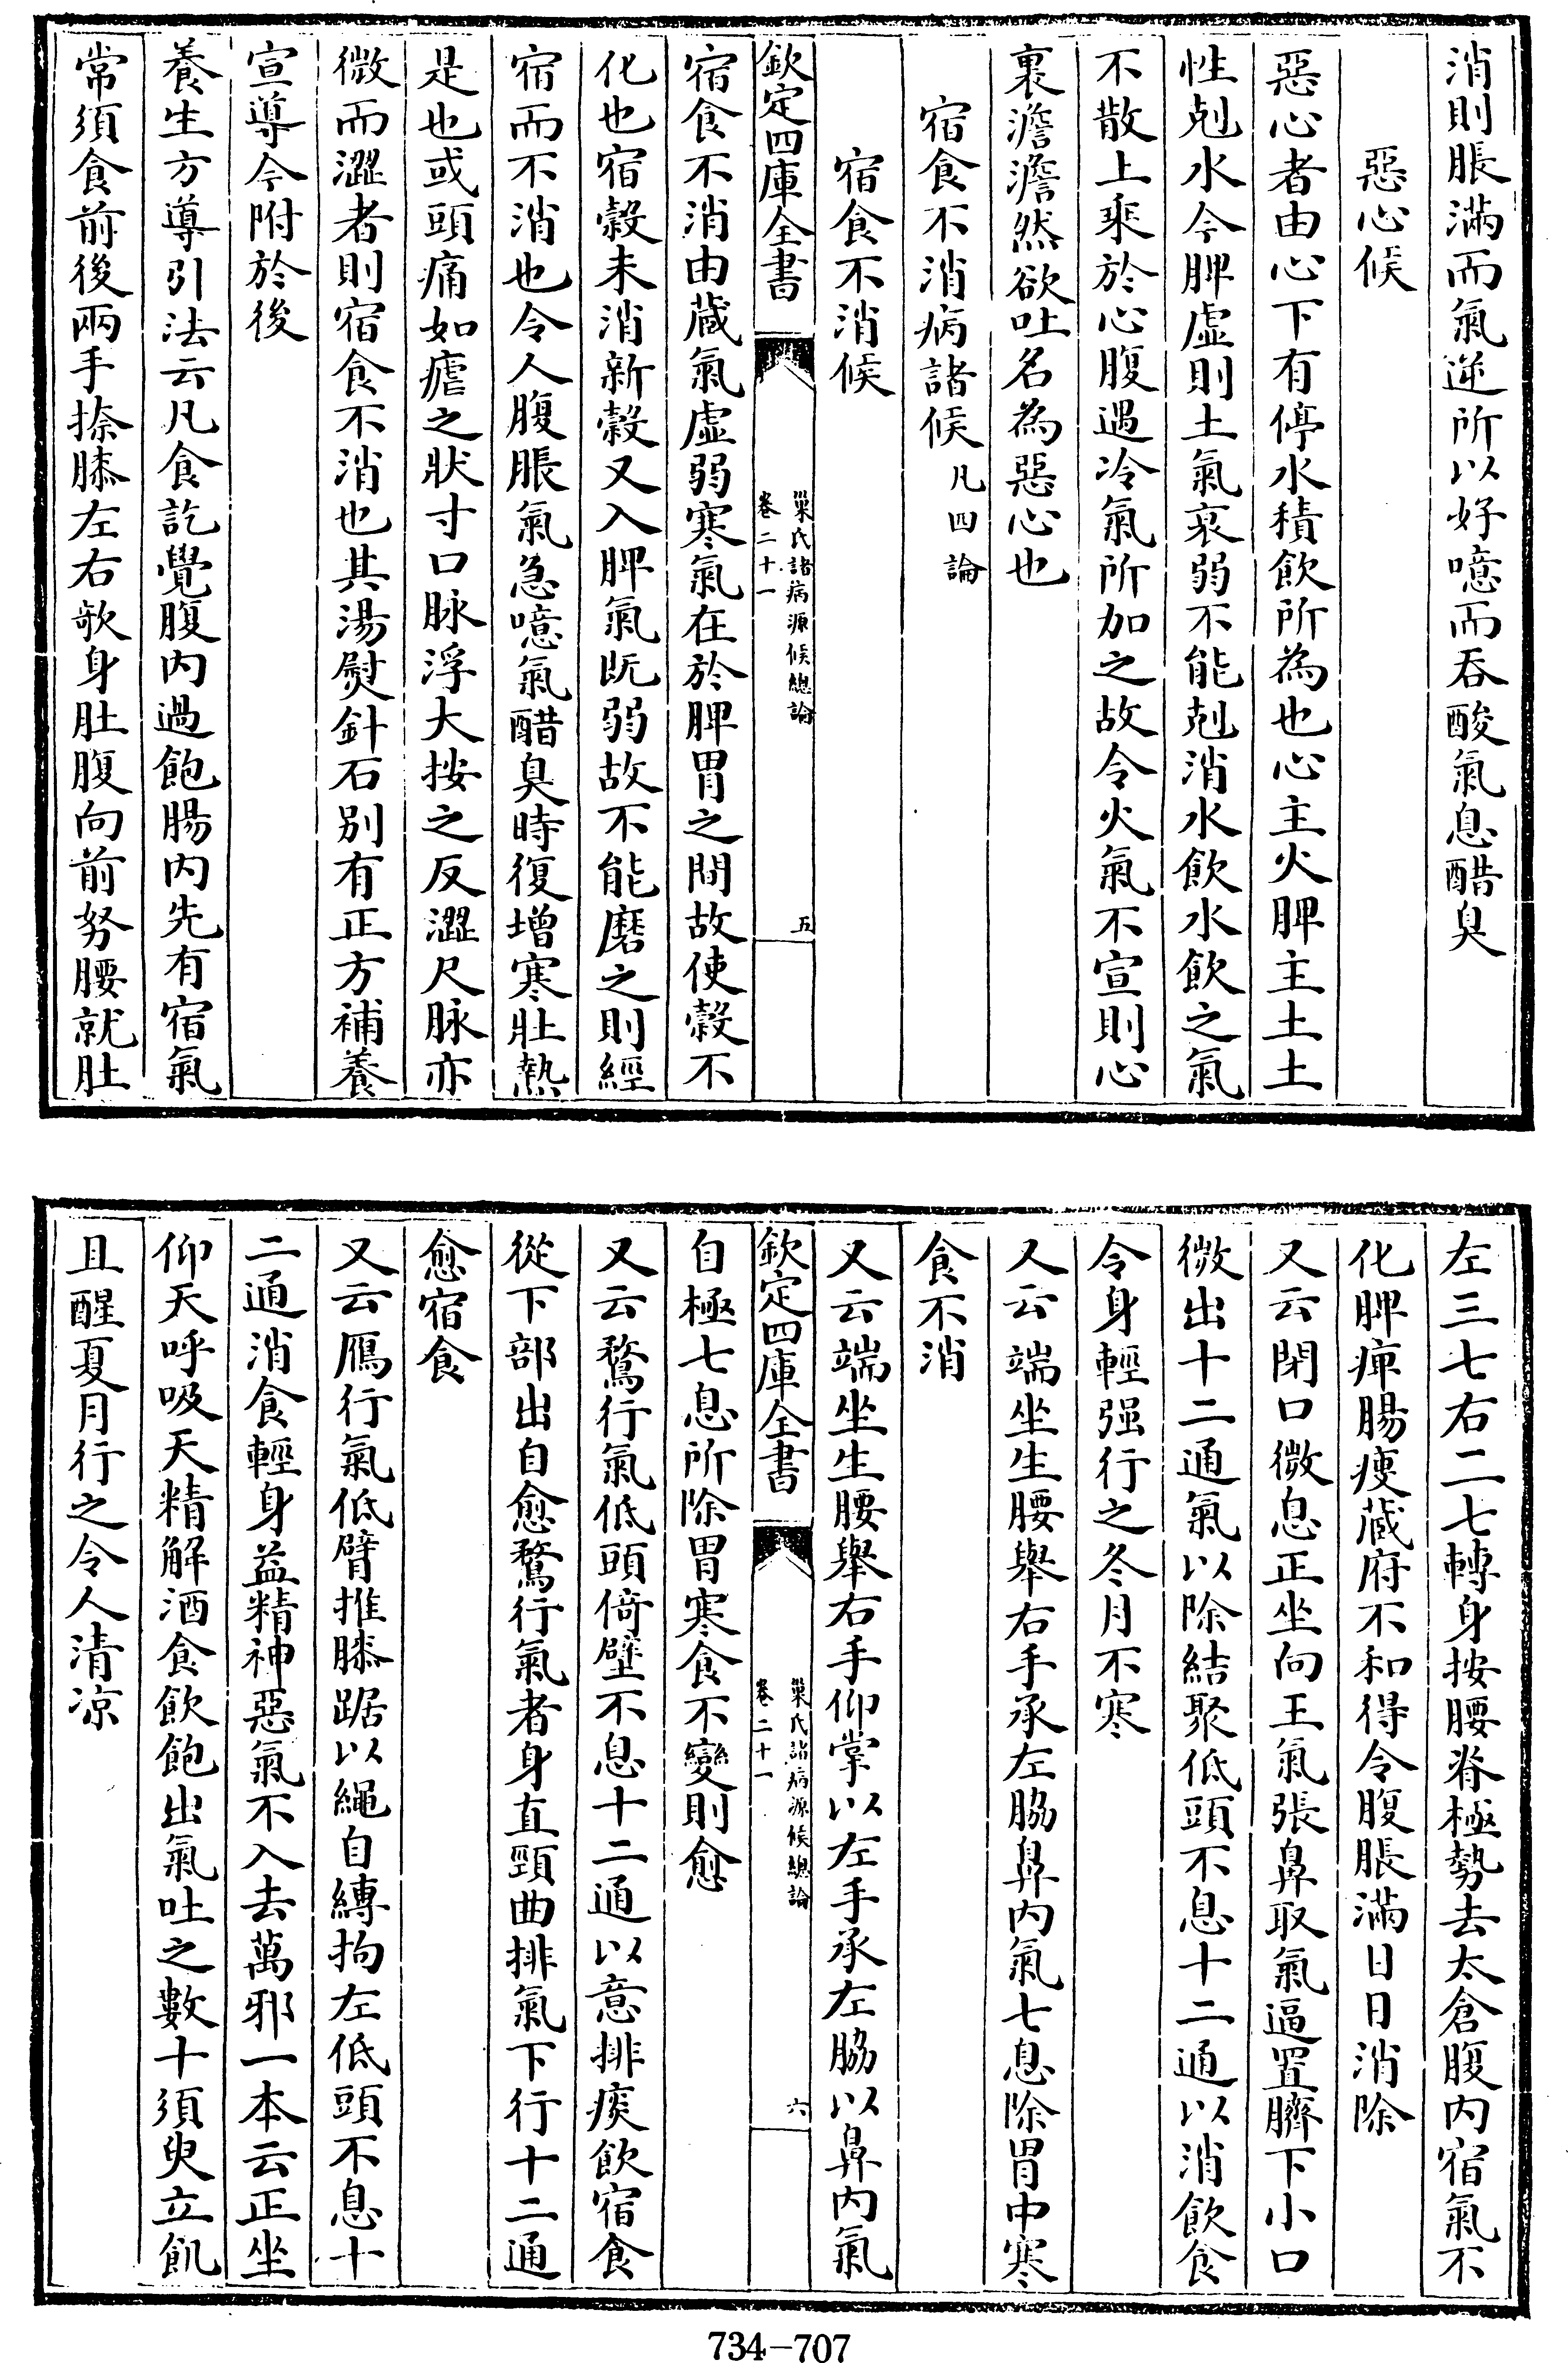 消則脹滿而氣逆所以好噫而吞酸氣息醋臭
惡心候
惡心者由心下有停水積飲所為也心主火脾主土土
性剋水今脾虚則土氣衰弱不能剋消水飲水飲之氣
不散上乘於心腹遇冷氣所加之故令火氣不宣則心
裏澹澹然欲吐名為惡心也
宿食不消病諸候凡四論
宿食不消候
欽定四庫全書
巢氏諸病源候總論
卷二十一
五
宿食不消由藏氣虚弱寒氣在於脾胃之間故使穀不
化也宿穀未消新穀又入脾氣既弱故不能磨之則經
宿而不消也令人腹脹氣急噫氣醋臭時復增寒壯熱
是也或頭痛如瘧之狀寸口脉浮大按之反澀尺脉亦
微而澀者則宿食不消也其湯熨針石别有正方補養
宣導今附於後
養生方導引法云凡食訖覺腹内過飽腸内先有宿氣
常須食前後兩手捺膝左右欹身肚腹向前努腰就肚
左三七右二七轉身按腰脊極勢去太倉腹内宿氣不
化脾痺腸瘦藏府不和得令腹脹滿日日消除
又云閉口微息正坐向王氣張鼻取氣逼置臍下小口
微出十二通氣以除結聚低頭不息十二通以消飲食
令身輕强行之冬月不寒
又云端坐生腰舉右手承左脇鼻内氣七息除胃中寒
食不消
又云端坐生腰舉右手仰掌以左手承左脇以鼻内氣
欽定四庫全書
巢氏諸病源候總論
卷二十一
六
自極七息所除胃寒食不變則愈
又云鶩行氣低頭倚壁不息十二通以意排痰飲宿食
從下部出自愈鶩行氣者身直頸曲排氣下行十二通
愈宿食
又云鴈行氣低臂推膝踞以繩自縛拘左低頭不息十
二通消食輕身益精神惡氣不入去萬邪一本云正坐
仰天呼吸天精解酒食飲飽出氣吐之數十須臾立飢
且醒夏月行之令人清凉
734-707